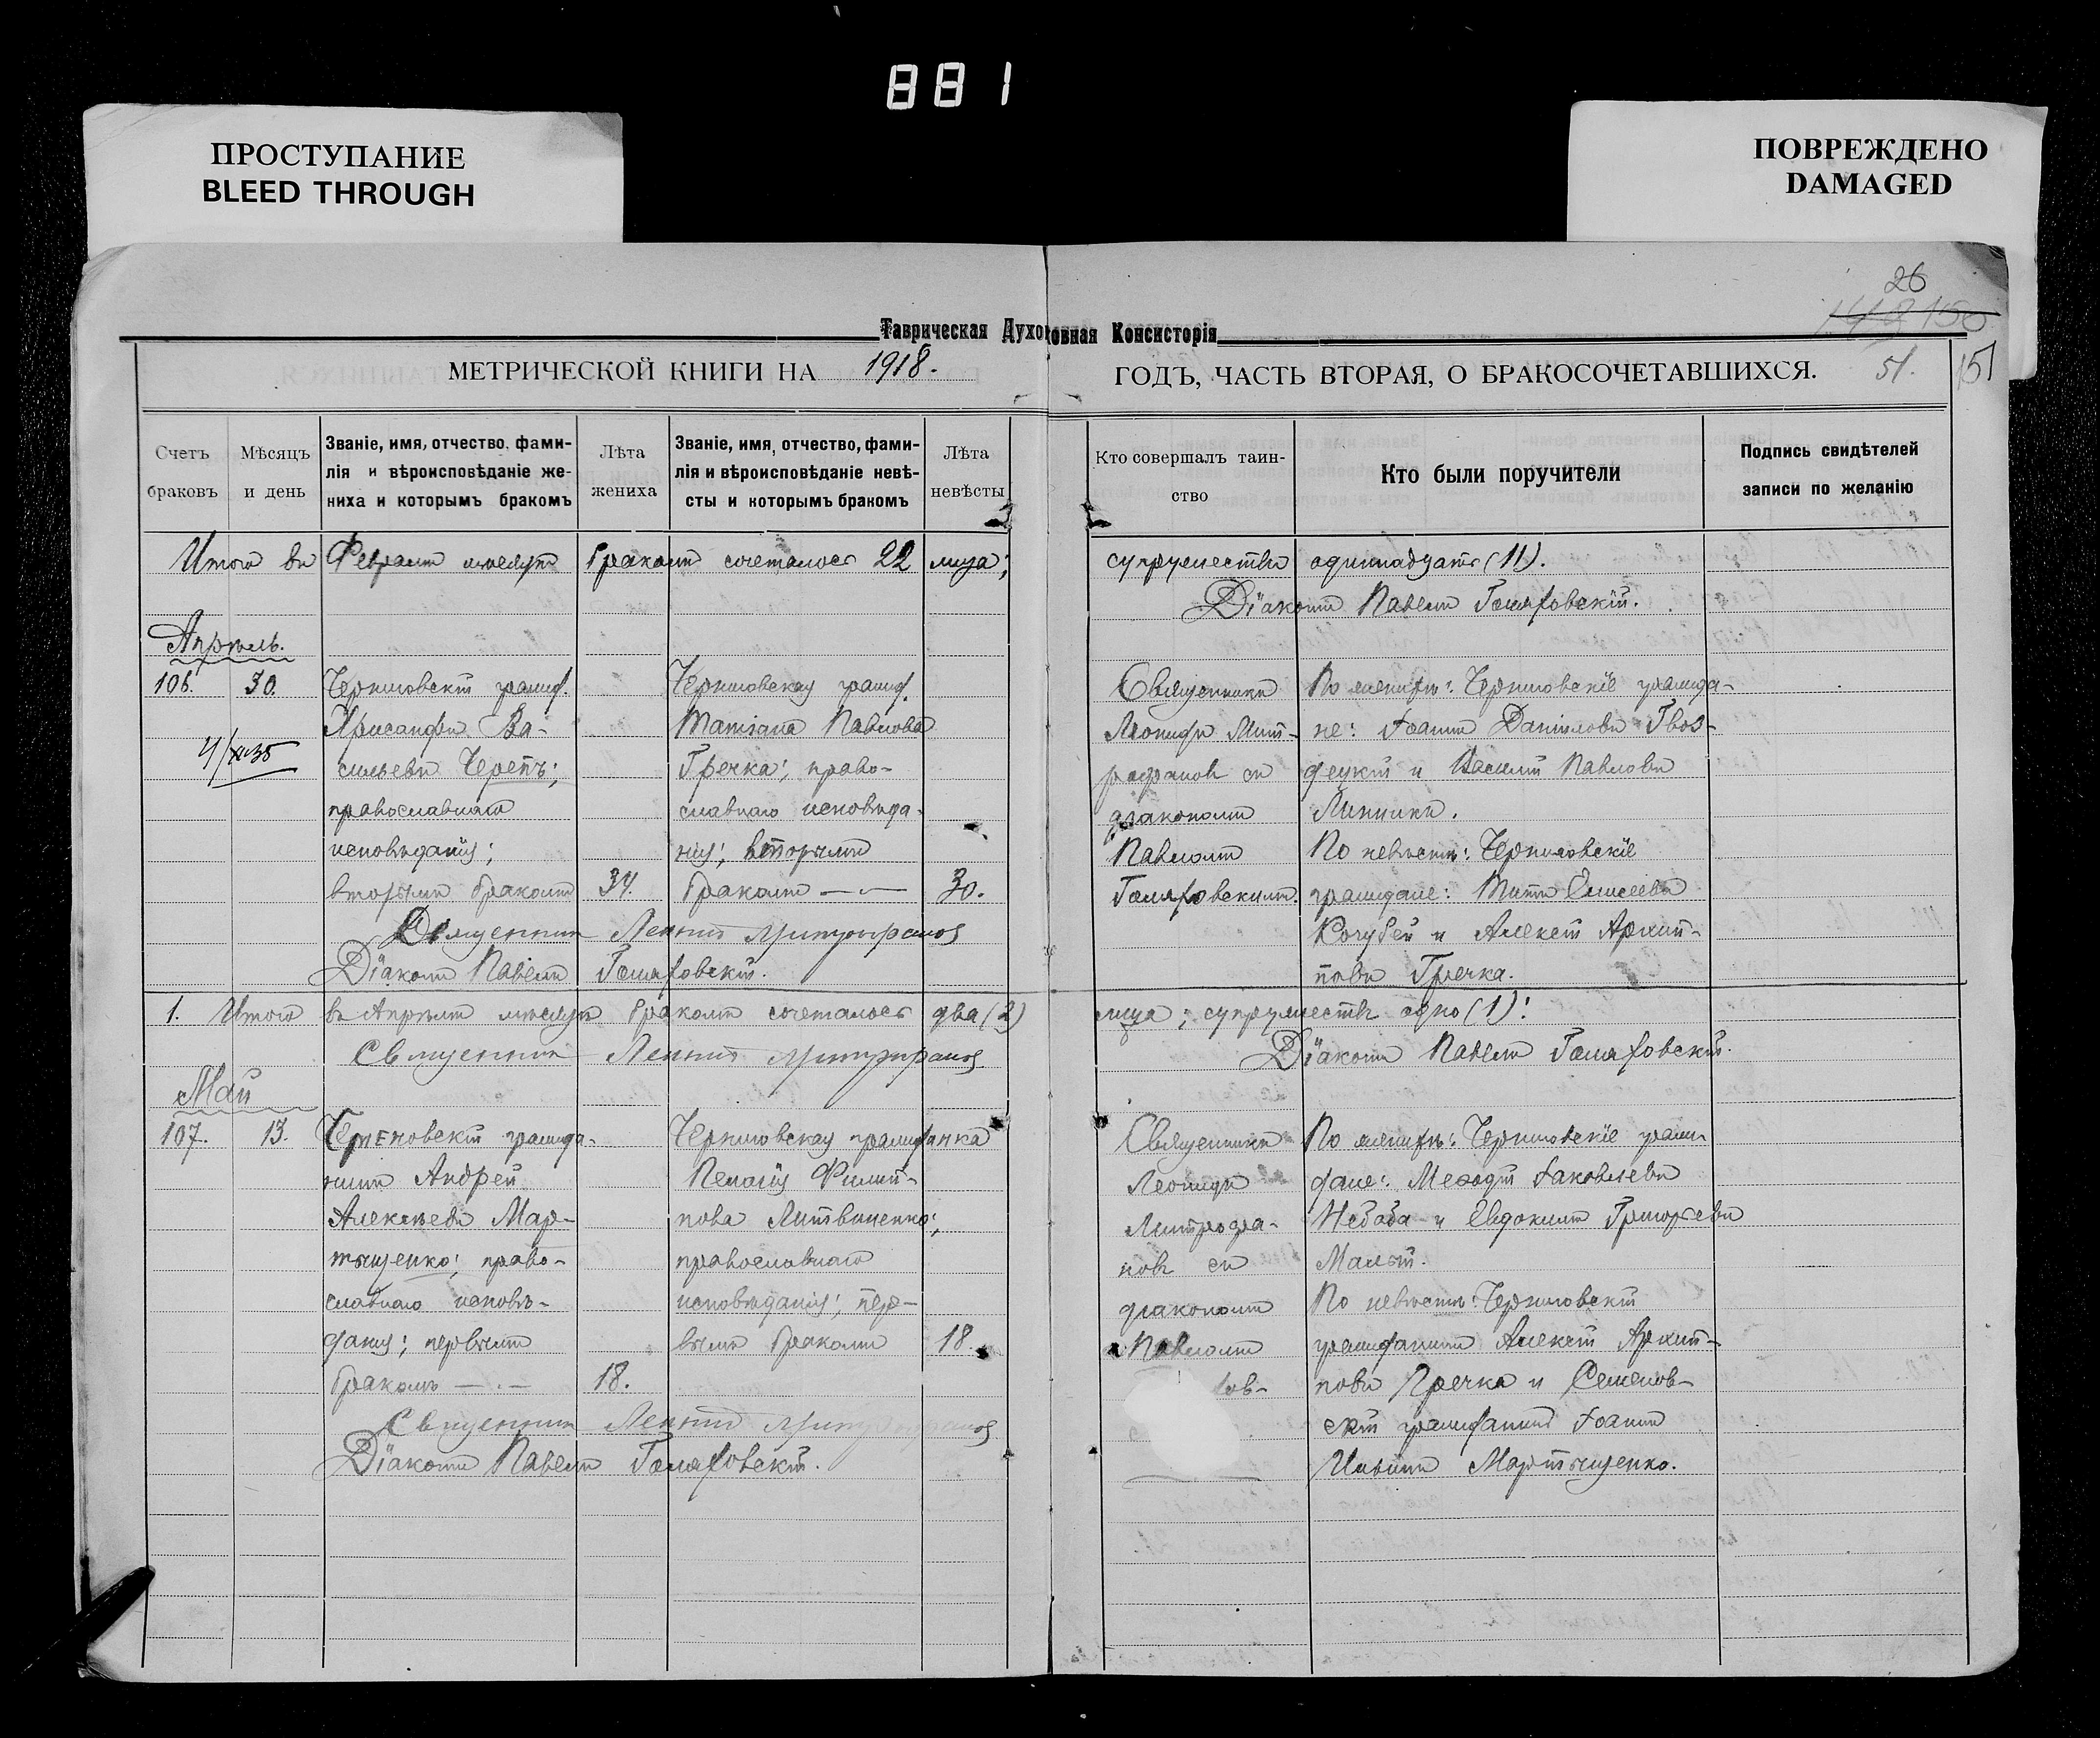 881
ПРОСТУПАНИЕ
BLEED THROUGH
ПОВРЕЖДЕНО
DAMAGED
26
150
51. 151
Таврическая Духовная Консисторія
МЕТРИЧЕСКОЙ КНИГИ НА 1918.
ГОДЪ, ЧАСТЬ ВТОРАЯ, О БРАКОСОЧЕТАВШИХСЯ.
Счетъ
браковъ
Мѣсяцъ
и день
Званіе, имя, отчество, фами-
лія и вѣроисповѣданіе же-
ниха и которымъ бракомъ
Лѣта
жениха
Званіе, имя, отчество, фами-
лія и вѣроисповѣданіе невѣ-
сты и которымъ бракомъ
Лѣта
невѣсты
Кто совершалъ таин-
ство
Кто были поручители
Подпись свидѣтелей
записи по желанію
Итого въ Февралѣ мѣсяцѣ бракомъ сочеталось 22 лица; супружествъ одиннадцать (11).
Діаконъ Павелъ
Апрѣль.
106. 30.
Черниговскій гражд.
Хрисанфъ Ва-
сильевъ Черепъ;
православнаго
исповѣданія;
вторымъ бракомъ
34.
Черниговская гражд.
Татіана Павлова
Гречка; право-
славнаго исповѣда-
нія; вторымъ
бракомъ —
30.
Священникъ
Леонидъ Мит-
рофановъ съ
діакономъ
Павломъ
По женихѣ: Черниговскіе гражда-
не: Іоаннъ Даніиловъ Гвоз-
децкій и Василій Павловъ
Линникъ.
По невѣстѣ: Черниговскіе
граждане: Титъ Елисеевъ
Кочубей и Алексѣй Архип-
повъ Гречка.
Священникъ Леонидъ Митрофановъ
Діаконъ Павелъ
1. Итого въ Апрѣлѣ мѣсяцѣ бракомъ сочеталось два (2) лица; супружествъ одно (1).
Священникъ Леонидъ Митрофановъ
Діаконъ Павелъ
Май
107. 13.
Семеновскій гражда-
нинъ Андрей
Алексѣевъ Мар-
тыщенко; право-
славнаго исповѣ-
данія; первымъ
бракомъ — . —
18.
Черниговская гражданка
Пелагія Филип-
пова Литвиненко;
православнаго
исповѣданія; пер-
вымъ бракомъ
18.
Священникъ
Леонидъ
Митрофа-
новъ съ
діакономъ
Павломъ
ов-
По женихѣ: Черниговскіе граж-
дане: Меѳодій Іаковлевъ
Небаба и Евдокимъ Григорьевъ
Малый.
По невѣстѣ: Черниговскій
гражданинъ Алексѣй Архип-
повъ Гречка и Семенов-
скій гражданинъ Іоаннъ
Мартыщенко.
Священникъ Леонидъ Митрофановъ
Діаконъ Павелъ